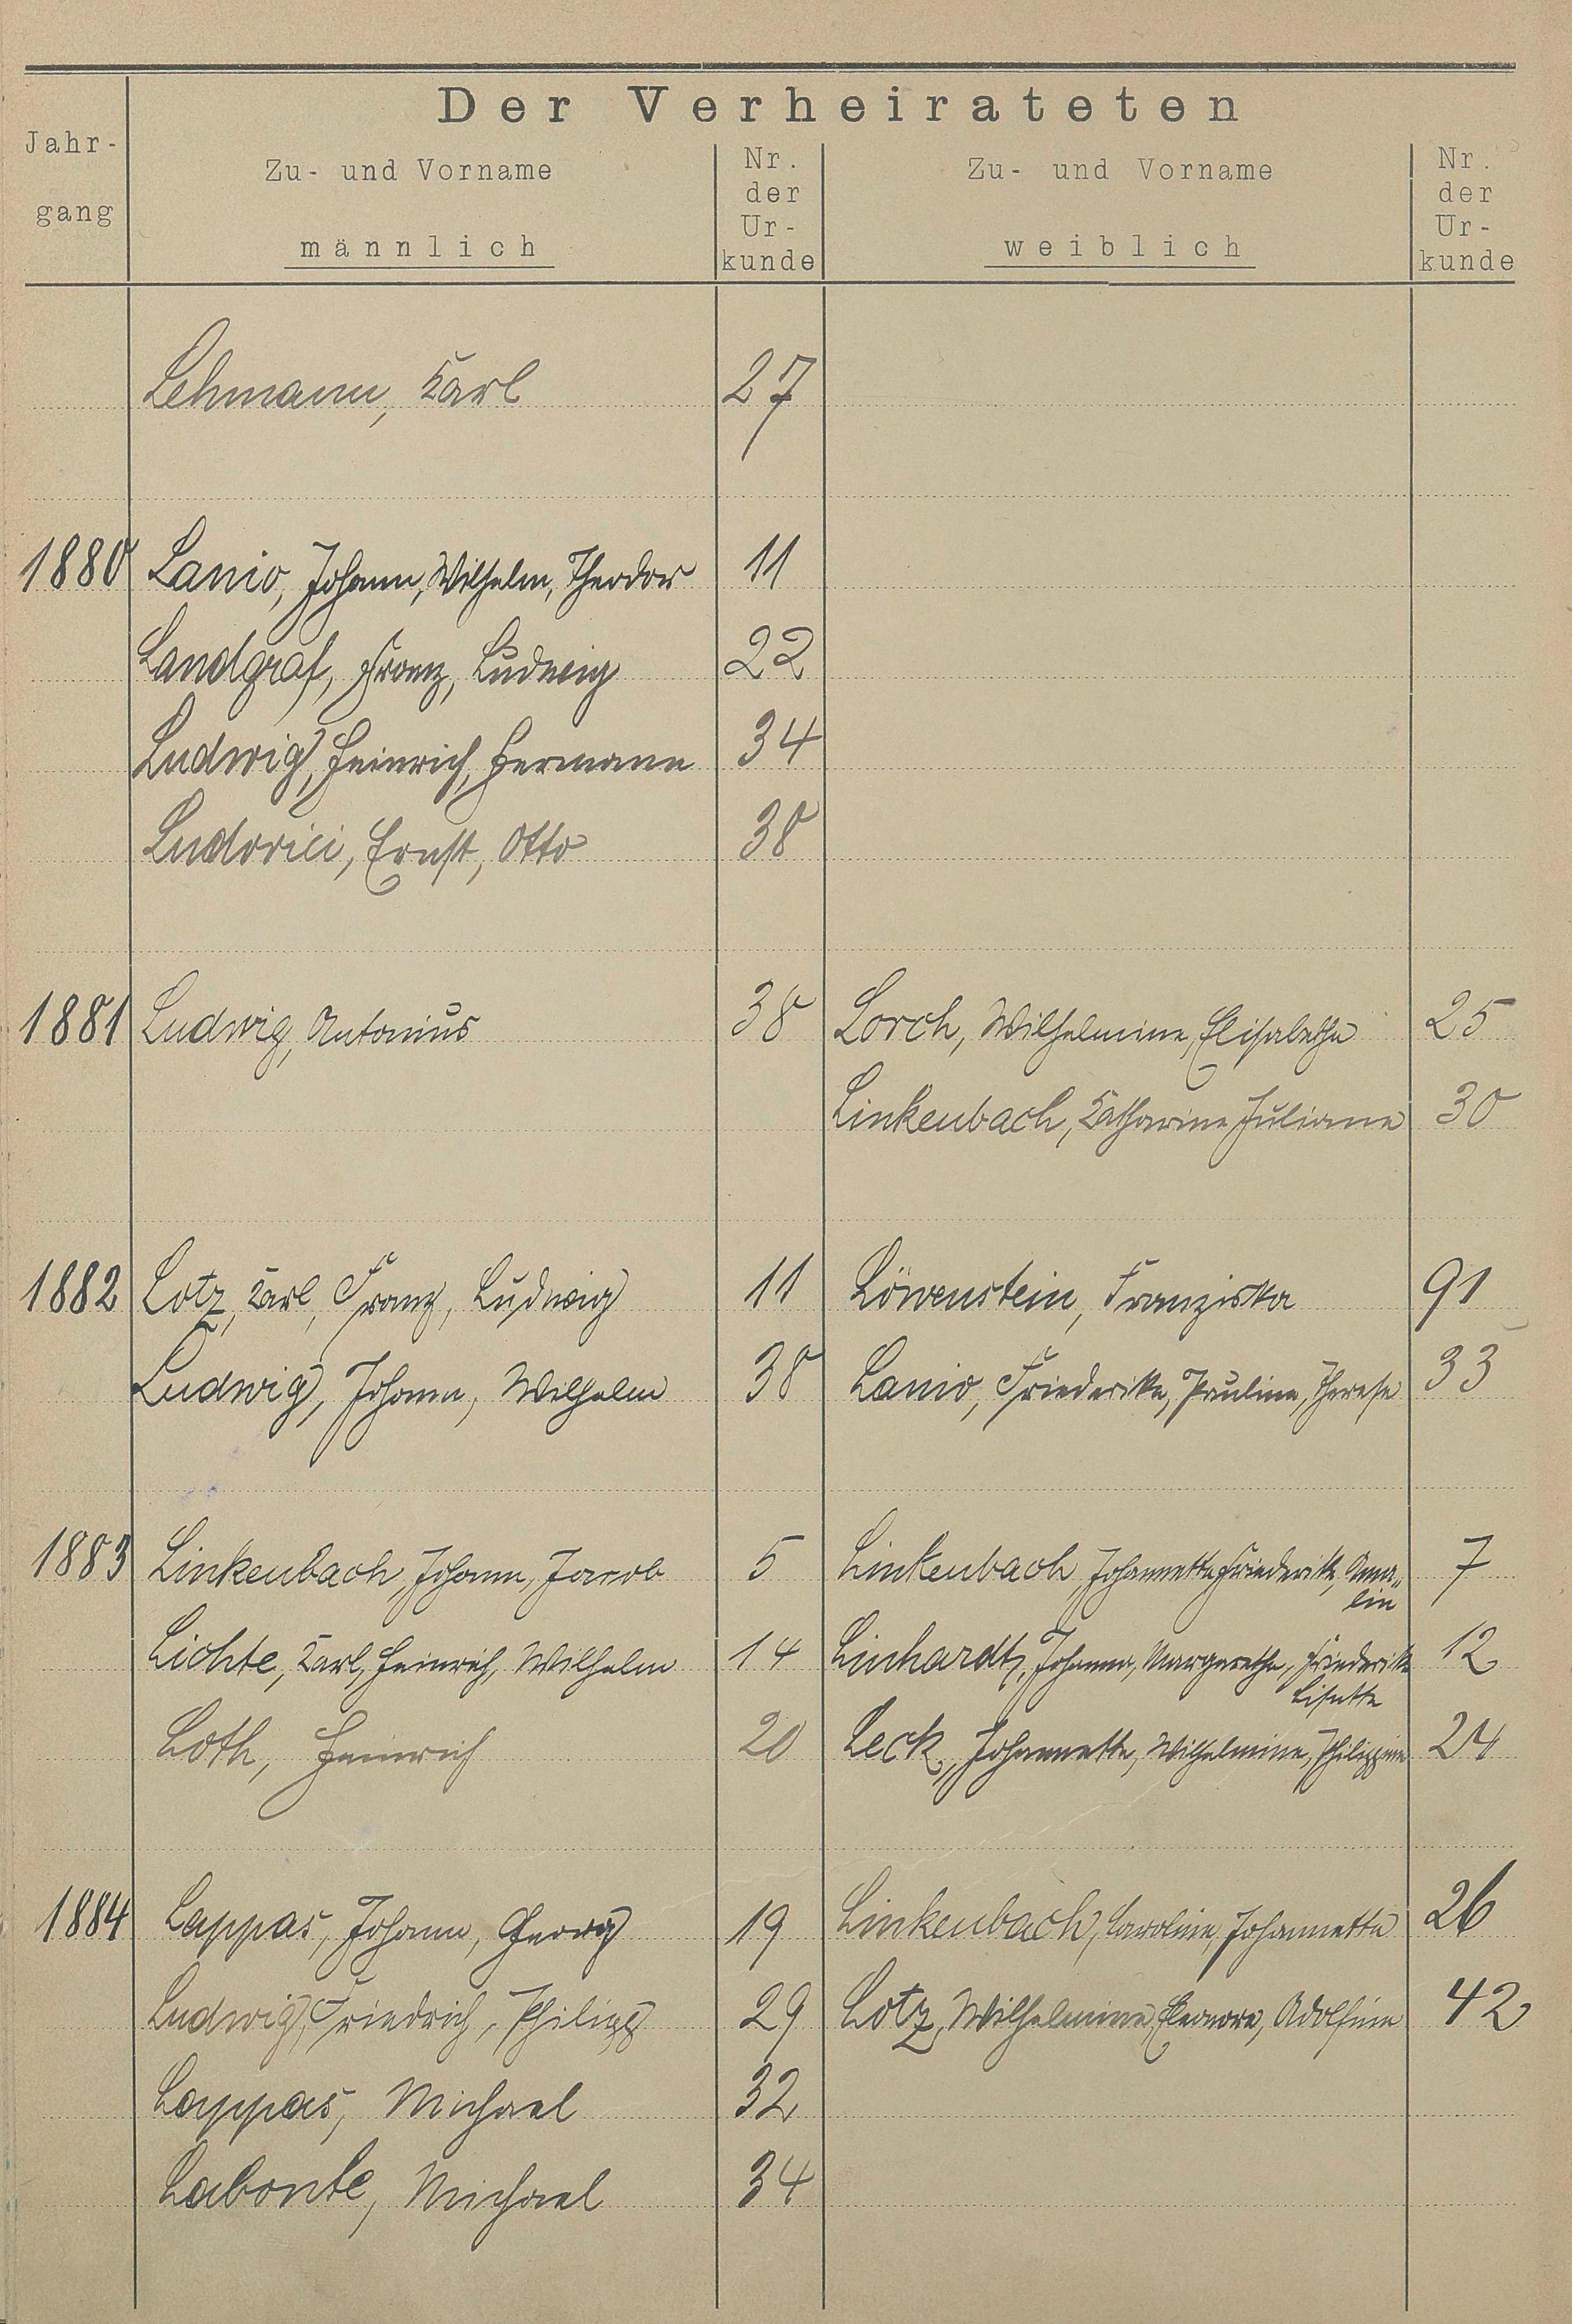 Der Verheirateten
Jahr-
gang
Zu- und Vorname
männlich
Nr.
der
Ur-
kunde
Zu- und Vorname
weiblich
Nr.
der
Ur-
kunde
Lehmann, Karl 27
1880 Lanio, Johann, Wilhelm, Theodor 11
Landgraf, Franz, Ludwig 22
Ludwig, Heinrich, Hermann 34
Ludovici, Ernst, Otto 38
1881 Ludwig, Antonius 38 Lorch, Wilhelmine, Elisabetha 25
Linkenbach, Katharine Juliane 30
1882 Lotz, Karl, Franz, Ludwig 11 Löwenstein, Franziska 91
Ludwig, Johann, Wilhelm 38 Lanio, Friederike, Pauline, Therese 33
1883 Linkenbach, Johann, Jacob 5 Linkenbach, Johannette Friederike, 7
Lichte, Karl, Heinrich, Wilhelm 14 Linhardt, Johanna, Margarethe, Friederike 12
Lisette
Loth, Heinrich 20 Leck, Johannette, Wilhelmine, Philippine 24
1884 Lappas, Johann, Georg 19 Linkenbach, Caroline, Johannette 26
Ludwig, Friedrich, Philipp 29 Lotz, Wilhelmine, Eleonore, Adolfine 42
Lappas, Michael 32
Labonte, Michael 34